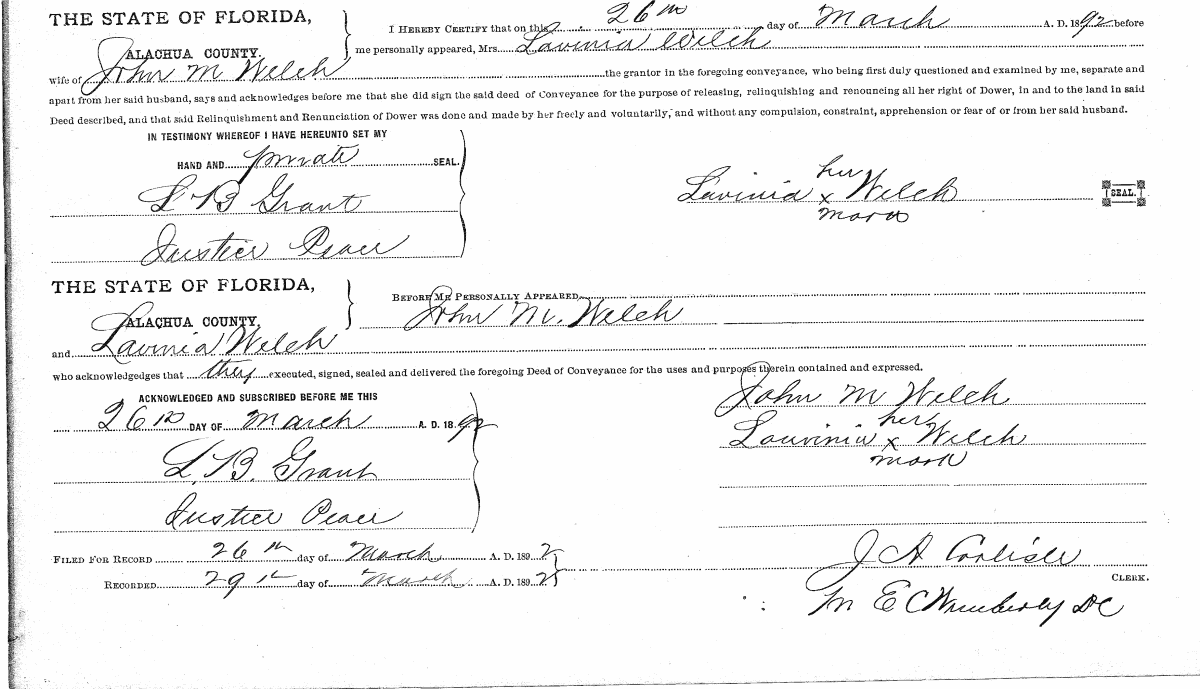 THE STATE OF FLORIDA,
ALACHUA COUNTY.
I HEREBY CERTIFY that on this 26th day of March A. D. 1892 before
me personally appeared, Mrs. Lavinia Welch
wife of John M Welch the grantor in the foregoing conveyance, who being first duly questioned and examined by me, separate and
apart from her said husband, says and acknowledges before me that she did sign the said deed of Conveyance for the purpose of releasing, relinquishing and renouncing all her right of Dower, in and to the land in said
Deed described, and that said Relinquishment and Renunciation of Dower was done and made by her freely and voluntarily, and without any compulsion, constraint, apprehension or fear of or from her said husband.
IN TESTIMONY WHEREOF I HAVE HEREUNTO SET MY
HAND AND private SEAL.
L B Grant
Justice Peace
her
Lavinia x Welch SEAL.
mark
THE STATE OF FLORIDA,
ALACHUA COUNTY.
BEFORE ME PERSONALLY APPEARED
John M. Welch
and Lavinia Welch
who acknowledgedges that they executed, signed, sealed and delivered the foregoing Deed of Conveyance for the uses and purposes therein contained and expressed.
ACKNOWLEDGED AND SUBSCRIBED BEFORE ME THIS
26th DAY OF March A. D. 1892
L. B. Grant
Justice Peace
John M Welch
her
Louvinia x Welch
mark
FILED FOR RECORD 26th day of March A. D. 1892
RECORDED 29th day of March A. D. 1892
J A Carlisle
CLERK.
E C Wimberly DC